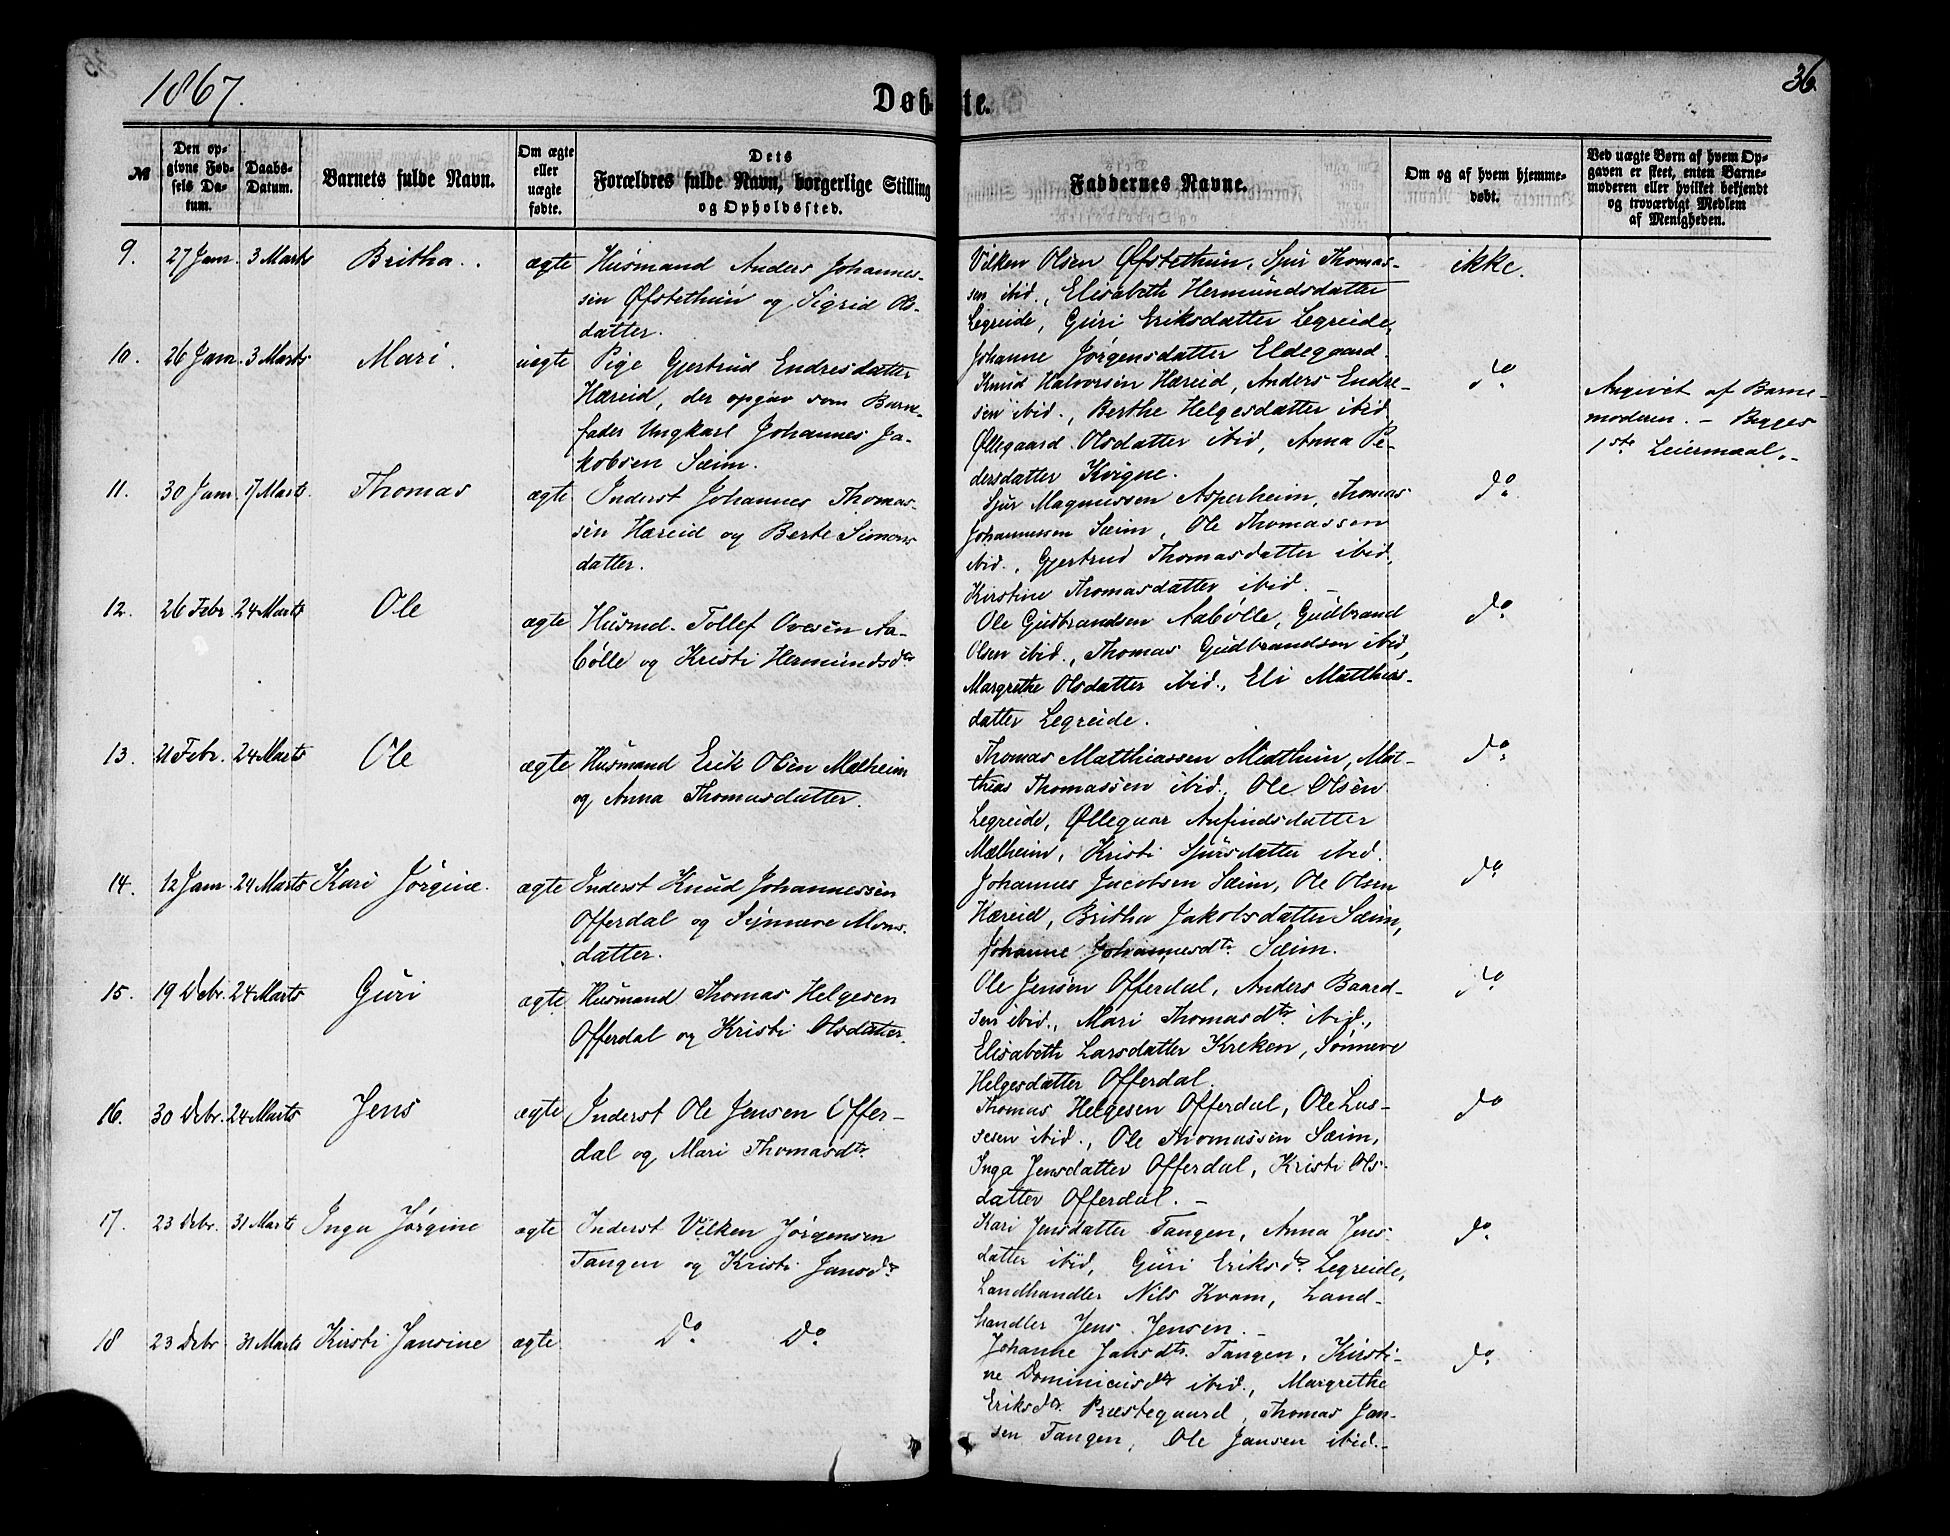 1867.
Døbte.
36.
№
Den opgivne Fødsels Datum.
Daabs-Datum.
Barnets fulde Navn.
Om ægte eller uægte fødte.
Dets Forældres fulde Navn, borgerlige Stilling og Opholdssted.
Faddernes Navne.
Om og af hvem hjemmedøbt.
Ved uægte Børn af hvem Opgaven er skeet, enten Barnemoderen eller hvilket bekjendt og troværdigt Medlem af Menigheden.
9. 27 Jan. 3 Marts Britha. ægte Husmand Anders Johannes-
sen Øfstethun og Sigrid Ols-
datter.
Vilken Olsen Øfstethun, Sjur Thomas-
sen ibid., Elisabeth Hermundsdatter
Legreide, Guri Eriksdatter Legreide,
Johanne Jørgensdatter Eldegaard.
ikke.
10. 26 Jan. 3 Marts Mari. uægte Pige Gjertrud Endresdatter
Hæreid, der opgav som Barne-
fader Ungkarl Johannes Ja-
kobsen Sæim.
Knud Halvorsen Hæreid, Anders Endre-
sen ibid., Berthe Helgesdatter ibid
Øllegaard Olsdatter ibid, Anna Pe-
dersdatter Kvigne.
do
Angivet af Barne-
moderen. – Begges
1ste Leiermaal.
11. 30 Jan. 17 Marts. Thomas ægte Inderst Johannes Thomas-
sen Hæreid og Berte Simons
datter.
Sjur Magnussen Asperheim, Thomas
Johannessen Sæim, Ole Thomassen
ibid., Gjertrud Thomasdatter ibid,
Kirstine Thomasdatter ibid. –
do
12. 26 Febr 24 Marts Ole ægte Husmd. Tollef Ovesen Aa-
bølle og Kristi Hermundsdtr
Ole Gudbrandsen Aabølle, Gudbrand
Olsen ibid., Thomas Gudbrandsen ibid,
Margrethe Olsdatter ibid., Eli Matthias-
datter Legreide.
do
13. 21 Febr. 24 Marts Ole ægte Husmand Erik Olsen Mælheim
og Anna Thomasdatter.
Thomas Matthiassen Midthun, Mat-
thias Thomassen ibid., Ole Olsen
Legreide, Øllegaar Anfindsdatter
Mælheim, Kristi Sjursdatter ibid.
do
14. 12 Jan 24 Marts Kari Jørgine. ægte Inderst Knud Johannessen
Offerdal og Synneve Mons-
datter.
Johannes Jacobsen Sæim, Ole Olsen
Hæreid, Britha Jakobsdatter Sæim,
Johanne Johannesdtr Sæim.
do
15. 19 Debr. 24 Marts Guri ægte Husmand Thomas Helgesen
Offerdal og Kristi Olsdatter.
Ole Jensen Offerdal, Anders Baard-
sen ibid., Mari Thomasdtr ibid.,
Elisabeth Larsdatter Kreken, Sønneve
Helgesdatter Offerdal.
do
16. 30 Debr. 24 Marts Jens ægte Inderst Ole Jensen Offer-
dal og Mari Thomasdtr.
Thomas Helgesen Offerdal, Ole Las-
sesen ibid., Ole Thomassen Sæim,
Inga Jensdatter Offerdal, Kristi Ols-
datter Offerdal. –
do
17. 23 Debr. 31 Marts Inga Jørgine ægte Inderst Vilken Jørgensen
Tangen og Kristi Jansdtr
Kari Jensdatter Tangen, Anna Jens-
datter ibid, Guri Eriksdtr Legreide,
Landhandler Nils Kvam, Land-
handler Jens Jensen. –
do
18 23 Debr 31 Marts Kirsti Jansine ægte Do Do
Johanne Jansdtr. Tangen, Kirsti-
ne Dominicusdtr ibid., Margrethe
Eriksdtr. Præstegaard, Thomas Jan-
sen Tangen, Ole Jansen ibid. –
do